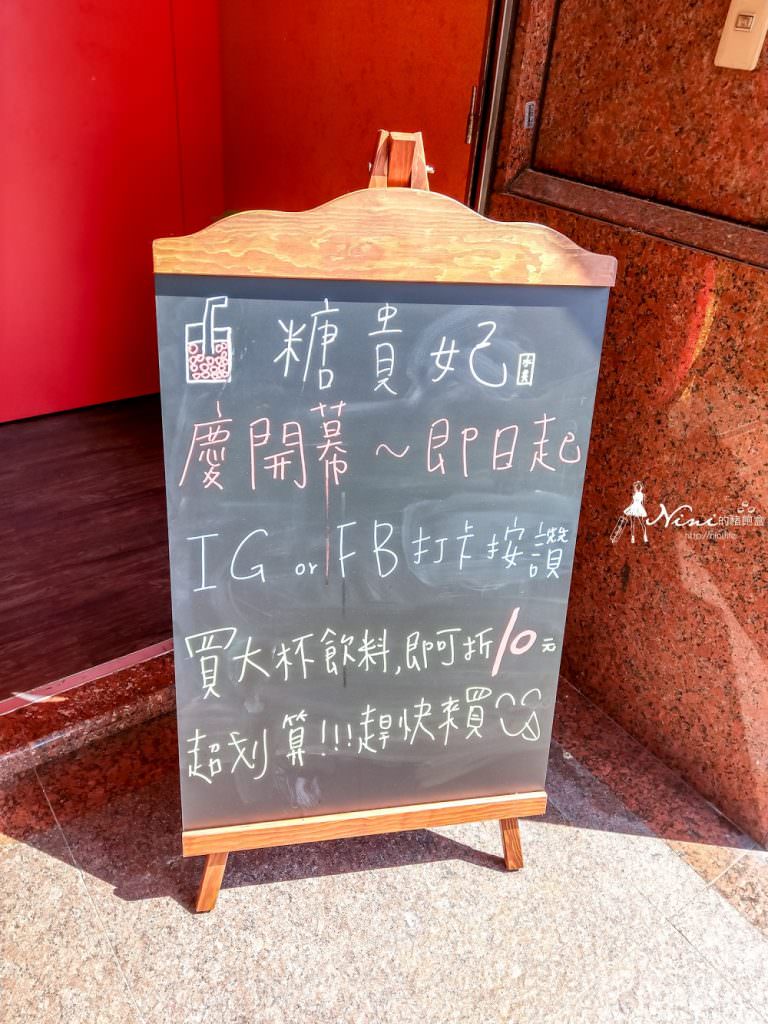 糖貴妃
慶開幕～即日起
IG or FB 打卡按讚
買大杯飲料,即可折10元
超划算!!!趕快來買
Nini的豬窩窩